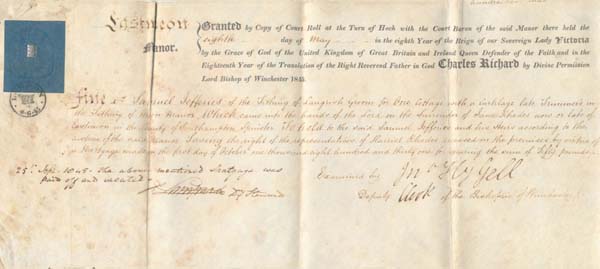 Eastmeon
Manor.
Granted by Copy of Court Roll at the Turn of Hock with the Court Baron of the said Manor there held the
eighth day of May in the eighth Year of the Reign of our Sovereign Lady Victoria
by the Grace of God of the United Kingdom of Great Britain and Ireland Queen Defender of the Faith and in the
Eighteenth Year of the Translation of the Right Reverend Father in God Charles Richard by Divine Permission
Lord Bishop of Winchester 1845.
Fine Samuel Jefferies of the Tithing of Langrish Groom for One Cottage with a curtilage late Trimmers in
the Tithing of Meon Which came into the hands of the Lord on the Surrender of Jane Rhodes now or late of
in the County of Southampton Spinster To hold to the said Samuel Jefferies and his Heirs according to the
custom of the said Manor Saving the right of the representatives of Harriet Rhodes deceased in the premises by virtue of
a Mortgage made on the first day of October one thousand eight hundred and thirty one for securing the sum of Fifty pounds
25th Sept 1845 the above mentioned Mortgage was
paid off and vacated
Dy Steward
Examined by Jno Hy Gell
Deputy Clerk of the Bishoprick of Winchester